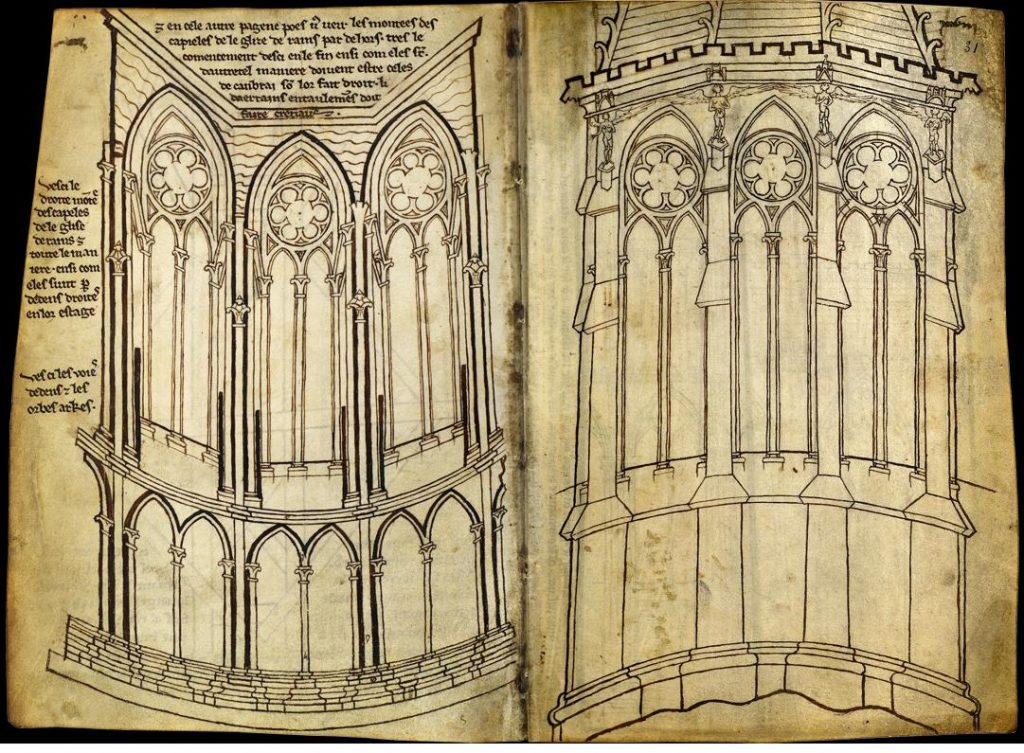 ⁊ en cele autre pagene poes vͦ veir les montees des
capieles de le glize de rains par dehors. tres le
comencement desci en le fin ensi com eles sͭ.
dautretel maniere doivent estre celes
de canbrai sͦ lor fait droit. li
daerrains entaulemens doit
faire creteaus.
Vesci le
droite mote
des capeles
de le glise
de rains ⁊
toute le man
iere. ensi com
eles sunt ꝑ
dedens droites
en lor estage
Vesci les voies
dedens ⁊ les
orbes arkes.
31